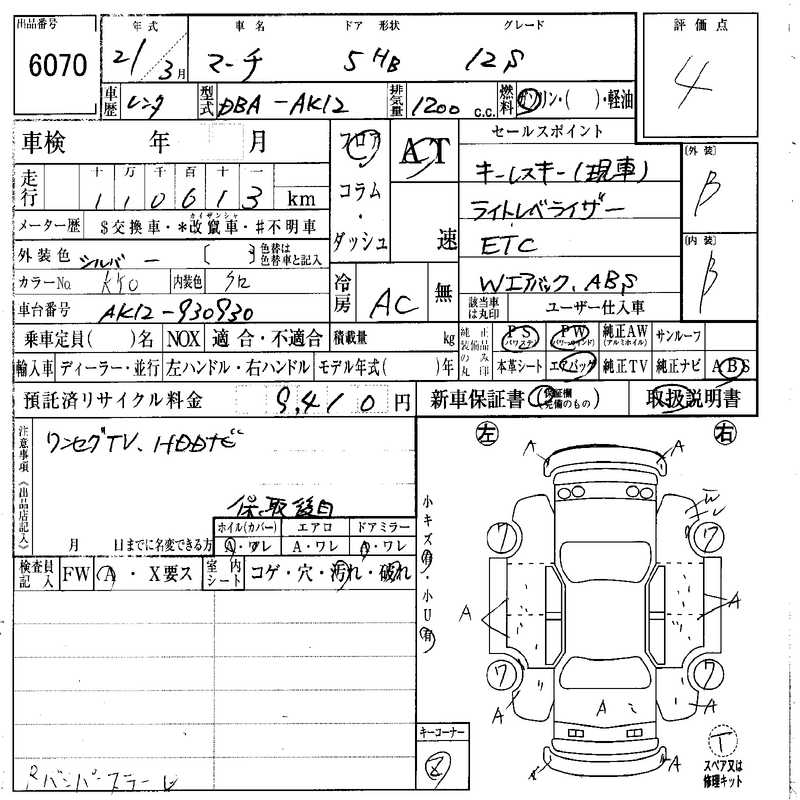 出品番号 年式 車名 ドア 形状 グレード 評価点
6070 21/3月 マーチ 5 HB 12S 4
車歴 レンタ 型式 DBA-AK12 排気量 1200 c.c. 燃料 ガソリン・( )・軽油
車検 年 月 フロア AT セールスポイント
キーレスキー(現車) [外装] B
走行 十 万 千 百 十 一
1 1 0 6 1 3 km コラム・ダッシュ 速 ライトレベライザー
メーター歴 $交換車・*改竄車・#不明車
カイザンシャ
ETC [内装] B
外装色 シルバー [ ] 色替は色替車と記入
カラーNo. KY0 内装色 クロ 冷房 AC 無 Wエアバック、ABS
車台番号 AK12-930930 該当車は丸印 ユーザー仕入車
乗車定員( )名 NOX 適合・不適合 積載量 kg 純正装備品のみ丸印 PS(パワステ) PW(パワーウインド) 純正AW(アルミホイル) サンルーフ
輸入車 ディーラー・並行 左ハンドル・右ハンドル モデル年式( )年 本革シート エアバッグ 純正TV 純正ナビ ABS
預託済リサイクル料金 9,410円 新車保証書(保証欄完備のもの) 取扱説明書
注意事項《出品店記入》 ワンセグTV、HDDナビ
左 右
A A
保、取 後日
ホイル(カバー) エアロ ドアミラー
月 日までに名変できる方 A・ワレ A・ワレ A・ワレ
検査員記入 FW A・X要ス 室内シート コゲ・穴・汚れ・破れ
小キズ有・小U有
ワ ワ
A A
ワ ワ
A A A
キーコーナー
Z
T
スペア又は修理キット
A A
Rバンパーステー